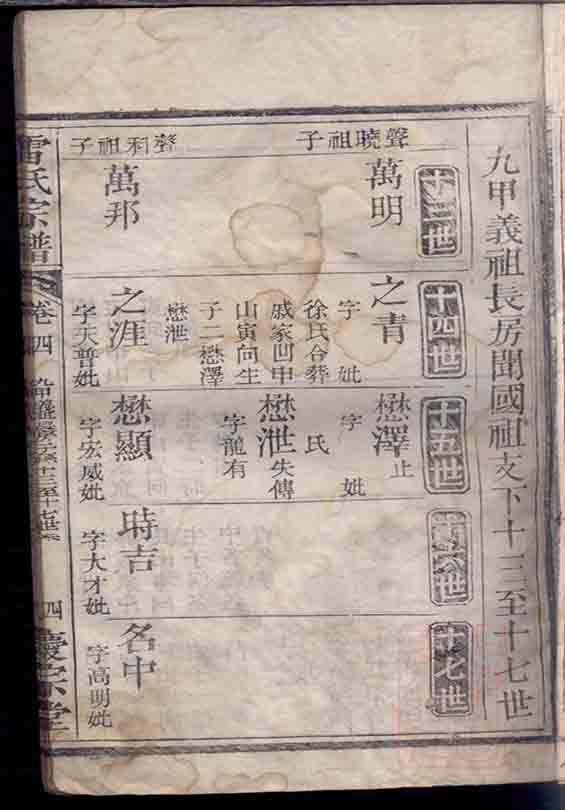 九甲義祖長房聞國祖支下十三至十七世
十三世
十四世
十五世
十六世
十七世
聲曉祖子
萬明
聲和祖子
萬邦
之青
字 妣
徐氏合葬
戚家凹甲
山寅向生
子二懋澤
懋泄
之涯
字天普妣
懋澤止
字 妣
氏
懋泄失傳
字龍有
懋顯
字宏威妣
時吉
字大才妣
名中
字高明妣
雷氏宗譜
卷四
四
慶宗堂